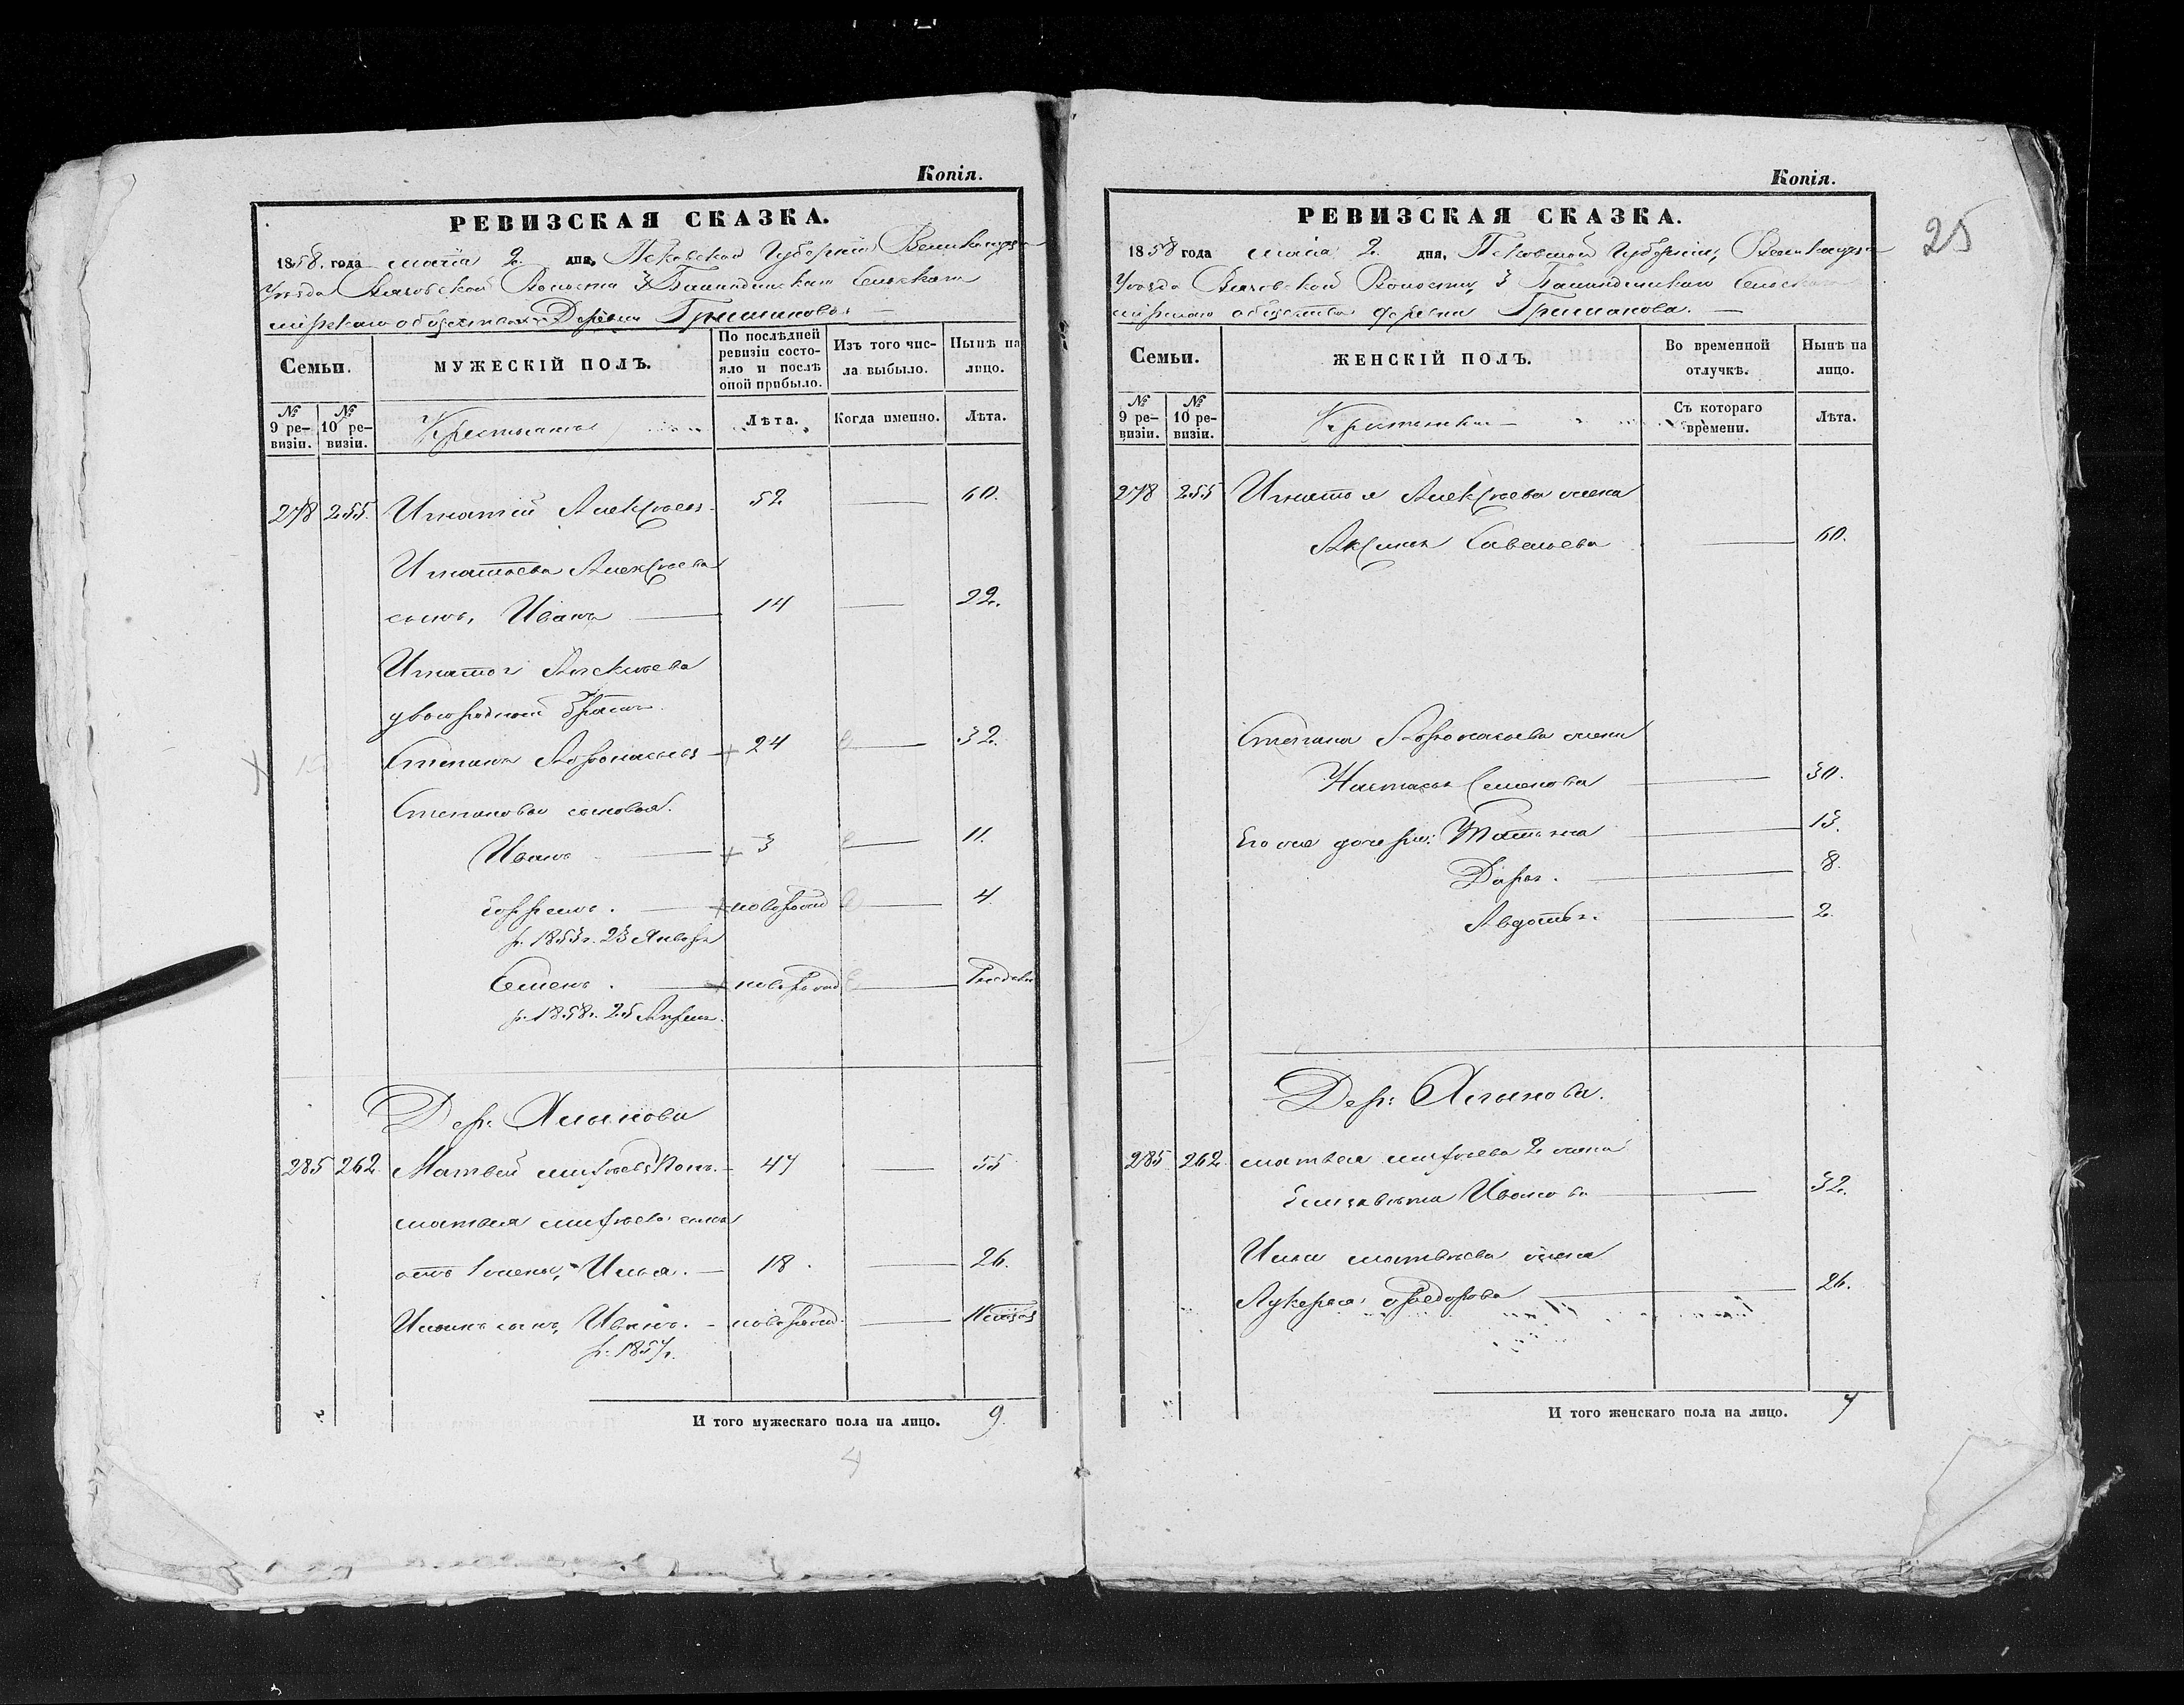 Копія.
РЕВИЗСКАЯ СКАЗКА.
1858. года маія 2 дня, Псковской Губерніи
Уѣзда Волости 3 Сельскаго
мірскаго общества Деревни Гришанова
Семьи.
МУЖЕСКІЙ ПОЛЪ.
По послѣдней ревизіи состояло и послѣ оной прибыло.
Изъ того числа выбыло.
Нынѣ на лицо.
№ 9 ревизіи.
№ 10 ревизіи.
Крестьяне
Лѣта.
Когда именно.
Лѣта.
278 255. Игнатій Алексѣевъ 52 60.
Игнатьева Алексѣева
сынъ, Иванъ 14 22.
Игнатія Алексѣева
двоюродной братъ
Степанъ Афонасьевъ 24 32.
Степановы сыновья.
Иванъ 3 11.
Ефремъ. новорожд 4
р. 1853г. 23 Января
Семенъ. новорожд
р. 1858г. 25 Апреля.
Дер: Ялынова
285 262 Матвей 47 55
матвея сынъ
отъ 1 жены, Илья. 18. 26.
Ильинъ сынъ, Иванъ. новорожд.
р: 1857г.
И того мужескаго пола на лицо. 9.
4
Копія.
25
РЕВИЗСКАЯ СКАЗКА.
1858 года маія 2. дня, Псковской Губерніи,
Уѣзда Волости, 3 Сельскаго
мірскаго общества деревни Гришанова.
Семьи.
ЖЕНСКІЙ ПОЛЪ.
Во временной отлучкѣ.
Нынѣ на лицо.
№ 9 ревизіи.
№ 10 ревизіи.
Съ котораго времени.
Лѣта.
278 255 Игнатья Алексѣева жена
Аксинья Савельева 60.
Степана Афонасьева жена
Настасья Семенова 30.
Его же дочери: Татьяна 13.
Дарья. 8.
Авдотья. 2.
Дер: Ялынова.
285 262 матвея 2 жена
Елизавѣта Иванова 32.
Ильи матвѣева жена
Лукерья Федорова 26.
И того женскаго пола на лицо. 7